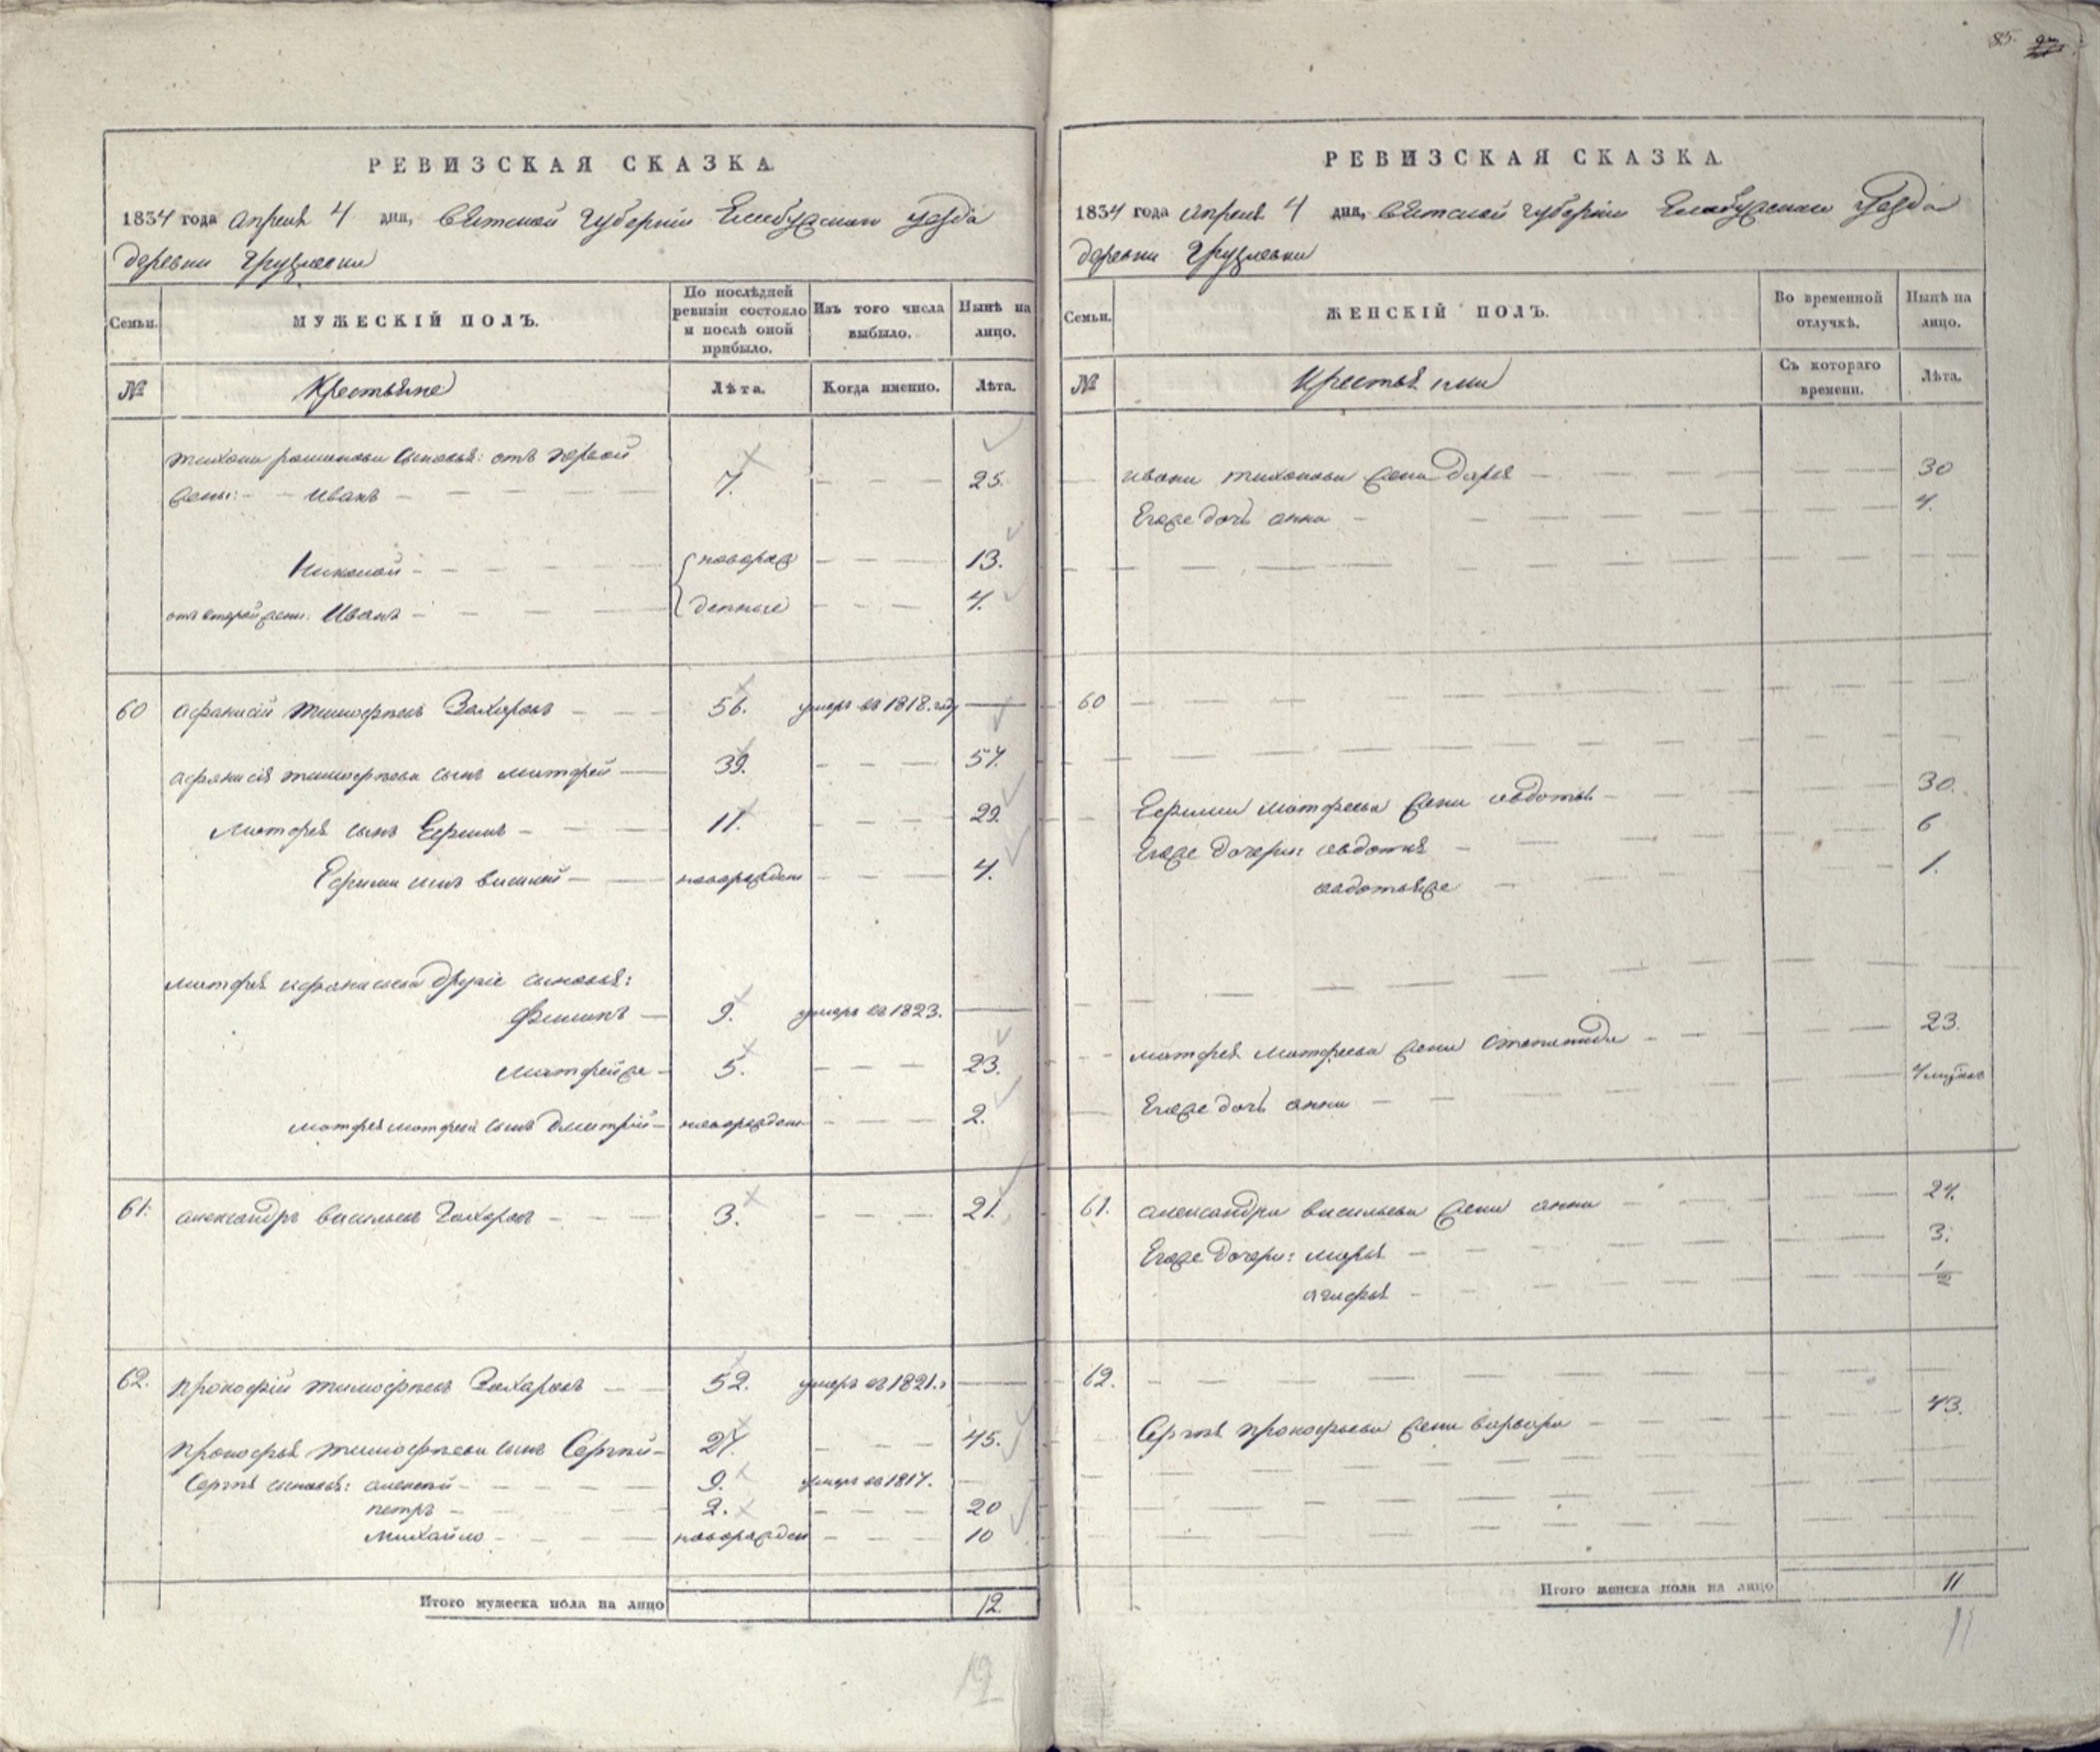 85.
РЕВИЗСКАЯ СКАЗКА.
1834 года апреля 4 дня, Вятской губернии Елабужскаго уезда
деревни
Семьи. МУЖЕСКІЙ ПОЛЪ. По послѣдней ревизіи состояло и послѣ оной прибыло. Изъ того числа выбыло. Нынѣ на лицо.
№ Крестьяне Лѣта. Когда именно. Лѣта.
Тихона сыновья: отъ первой
жены: Иванъ 7. 25.
Николай новорож 13.
отъ второй жены: Иванъ денные 4.
60 Афанасий Тимофеевъ Захаровъ 56. умеръ въ 1818. году
Афанасія Тимофеева сынъ Матфей 39. 57.
Матфея сынъ Ефимъ 11. 29.
Ефима сынъ Василий новорожден 4.
Матфея Афанасьева другіе сыновья:
Филипъ 9. умеръ въ 1823.
Матфей же 5. 23.
Матфея Матфеева сынъ Дмитрій новорожден 2.
61. Александръ Васильевъ Захаровъ 3. 21.
62. Прокофій Тимофеевъ Захаровъ 52. умеръ въ 1821.г
Прокофья Тимофеева сынъ Сергей 27. 45.
Сергея сыновья: Алексей 9. умеръ въ 1817.
Петръ 2. 20
Михайло новорожден 10
Итого мужеска пола на лицо 12.
12
РЕВИЗСКАЯ СКАЗКА.
1834 года апреля 4 дня, Вятской губернии Елабужскаго уезда
деревни
Семьи. ЖЕНСКІЙ ПОЛЪ. Во временной отлучкѣ. Нынѣ на лицо.
№ Крестьянки Съ котораго времени. Лѣта.
Ивана Тихонова жена Дарья 30
Егоже дочь Анна 4.
60
Ефима Матфеева жена Авдотья 30.
Егоже дочери: Авдотья 6
Авдотья же 1.
Матфея Матфеева жена Степанида 23.
Егоже дочь Анна
61. Александра Васильева жена Анна 24.
Егоже дочери: Марья 3.
Агафья 1/2
62.
Сергея Прокофьева жена Варвара 43.
Итого женска пола на лицо 11
11